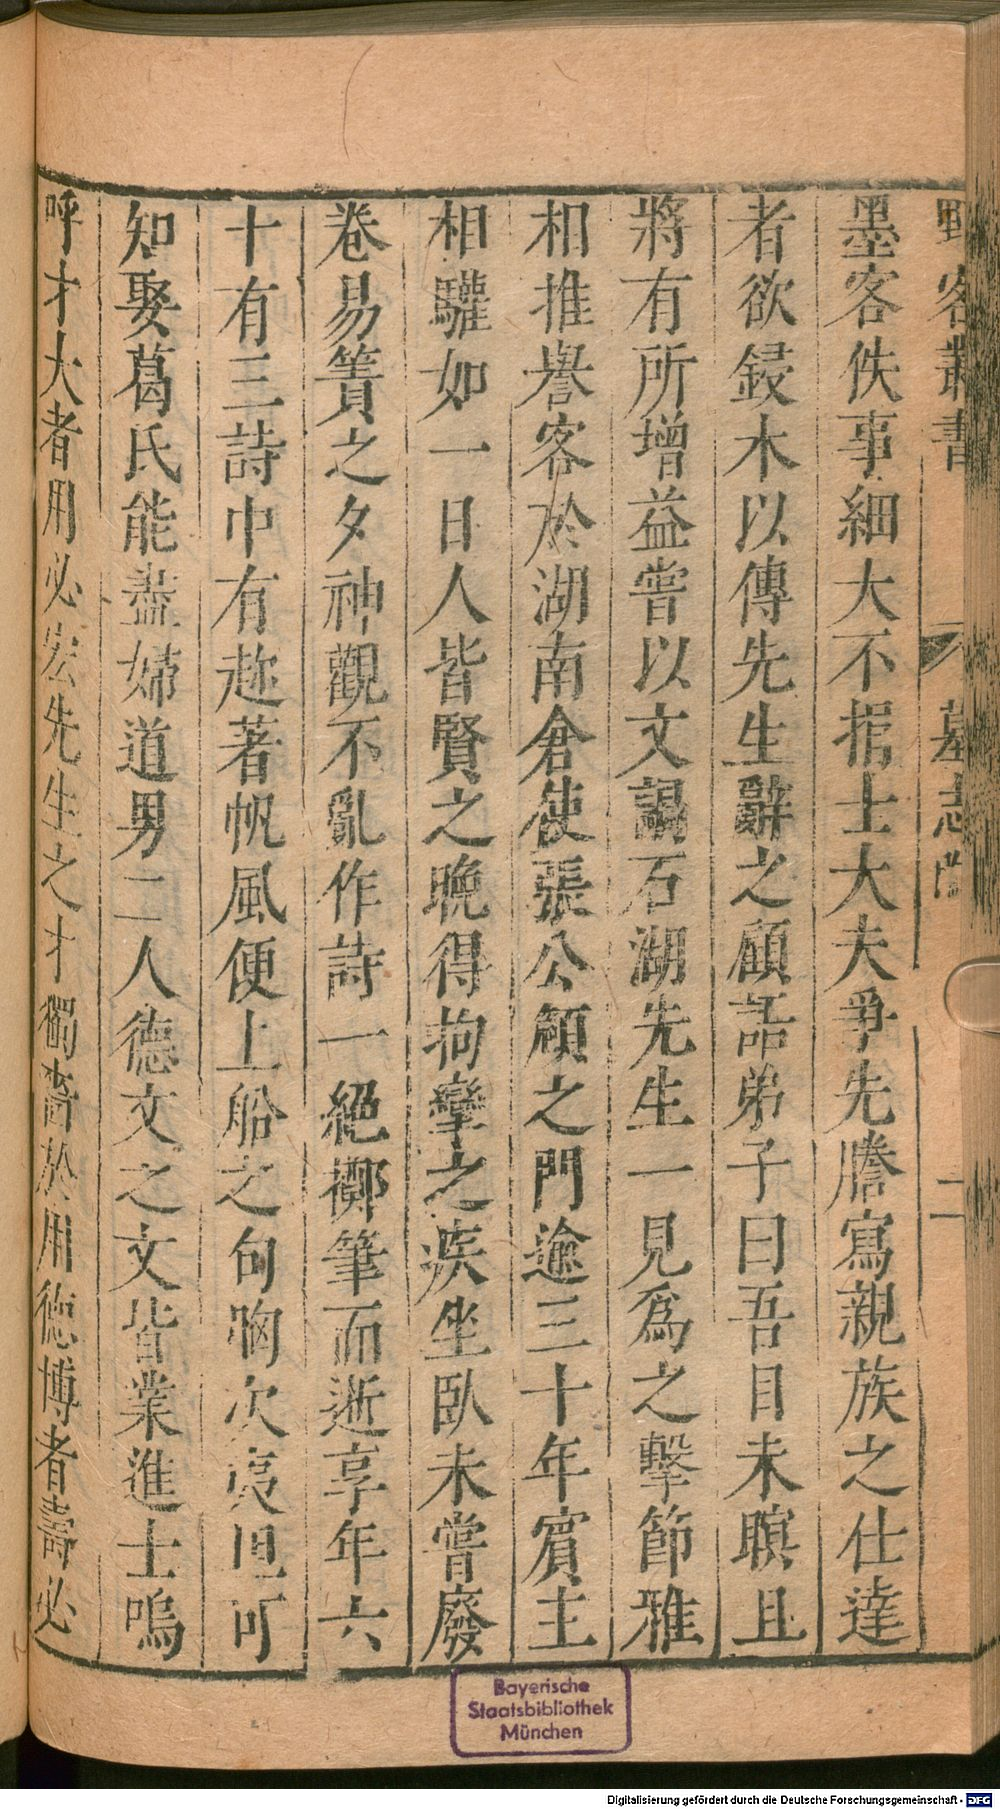 野客叢書 墓志銘 二
墨客佚事細大不捐士大夫爭先謄寫親族之仕達
者欲鋟木以傳先生辭之顧語弟子曰吾目未瞑且
將有所增益嘗以文謁石湖先生一見爲之擊節雅
相推譽客於湖南倉使張公頠之門逾三十年賓主
相驩如一日人皆賢之晚得拘攣之疾坐臥未嘗廢
卷易簀之夕神觀不亂作詩一絕擲筆而逝享年六
十有三詩中有趂著帆風便上船之句胸次夷坦可
知娶葛氏能盡婦道男二人德文之文皆業進士嗚
呼才大者用必宏先生之才獨嗇於用德博者壽必
Bayerische
Staatsbibliothek
München
Digitalisierung gefördert durch die Deutsche Forschungsgemeinschaft - DFG